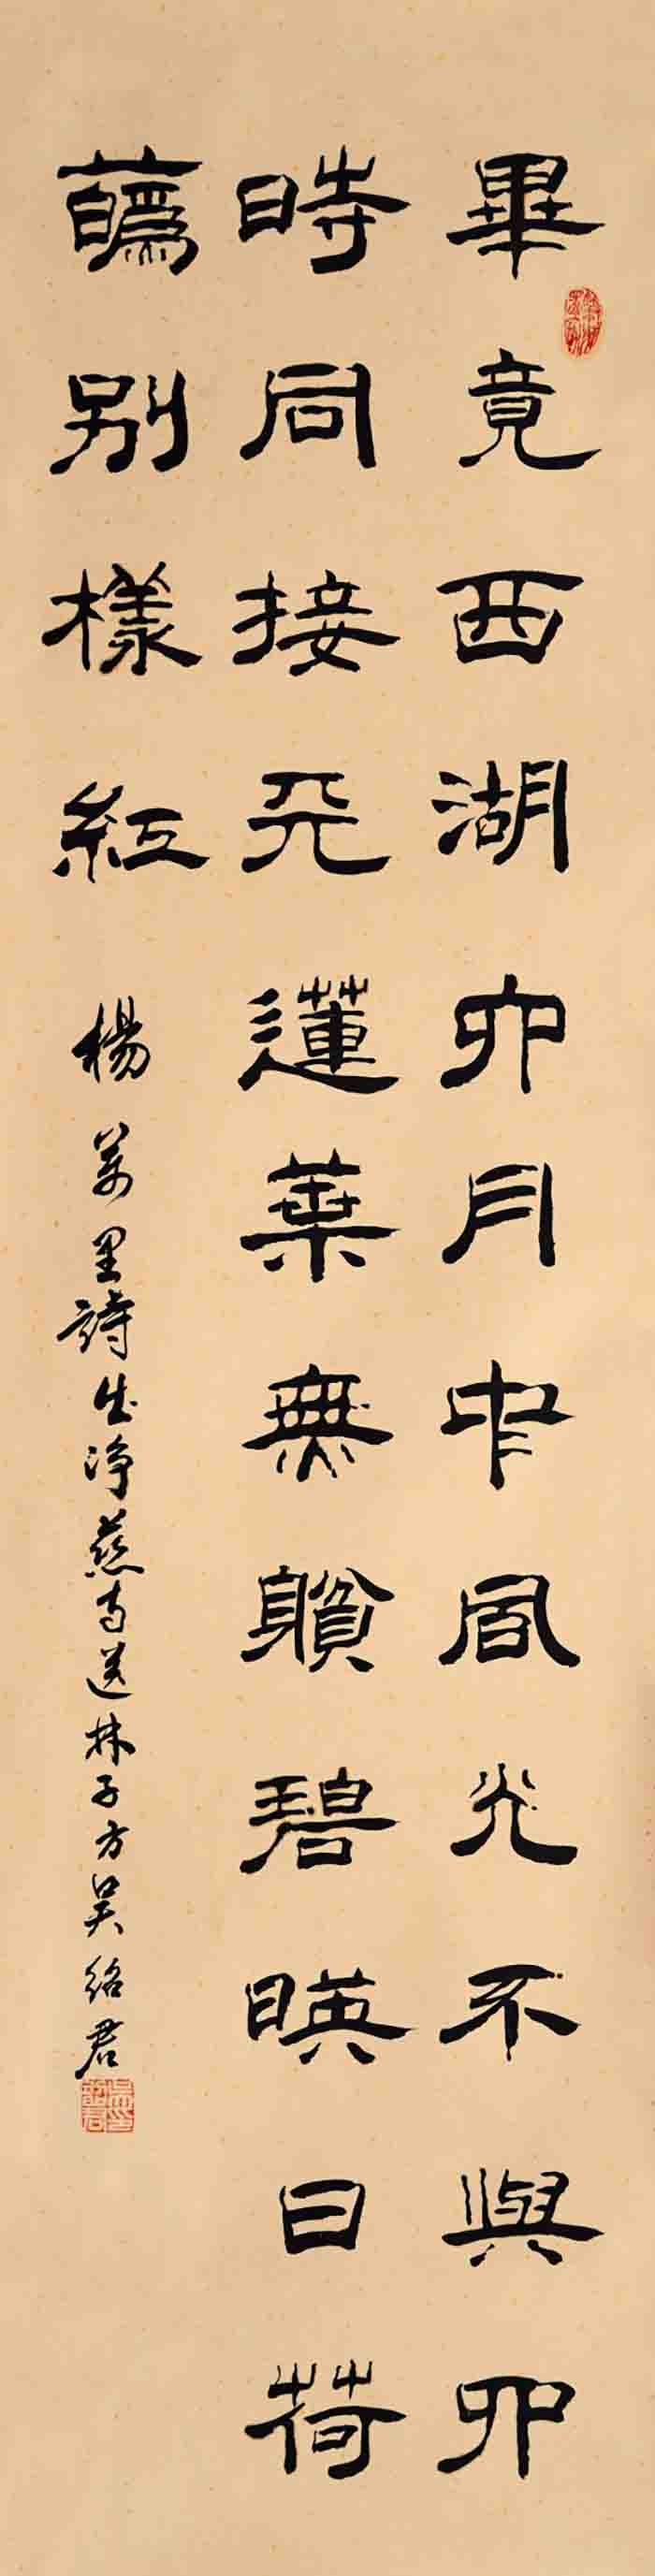 畢竟西湖六月中風光不與四
時同接天蓮葉無窮碧映日荷
蘤別樣紅
楊萬里詩出淨慈寺送林子方吳紹君